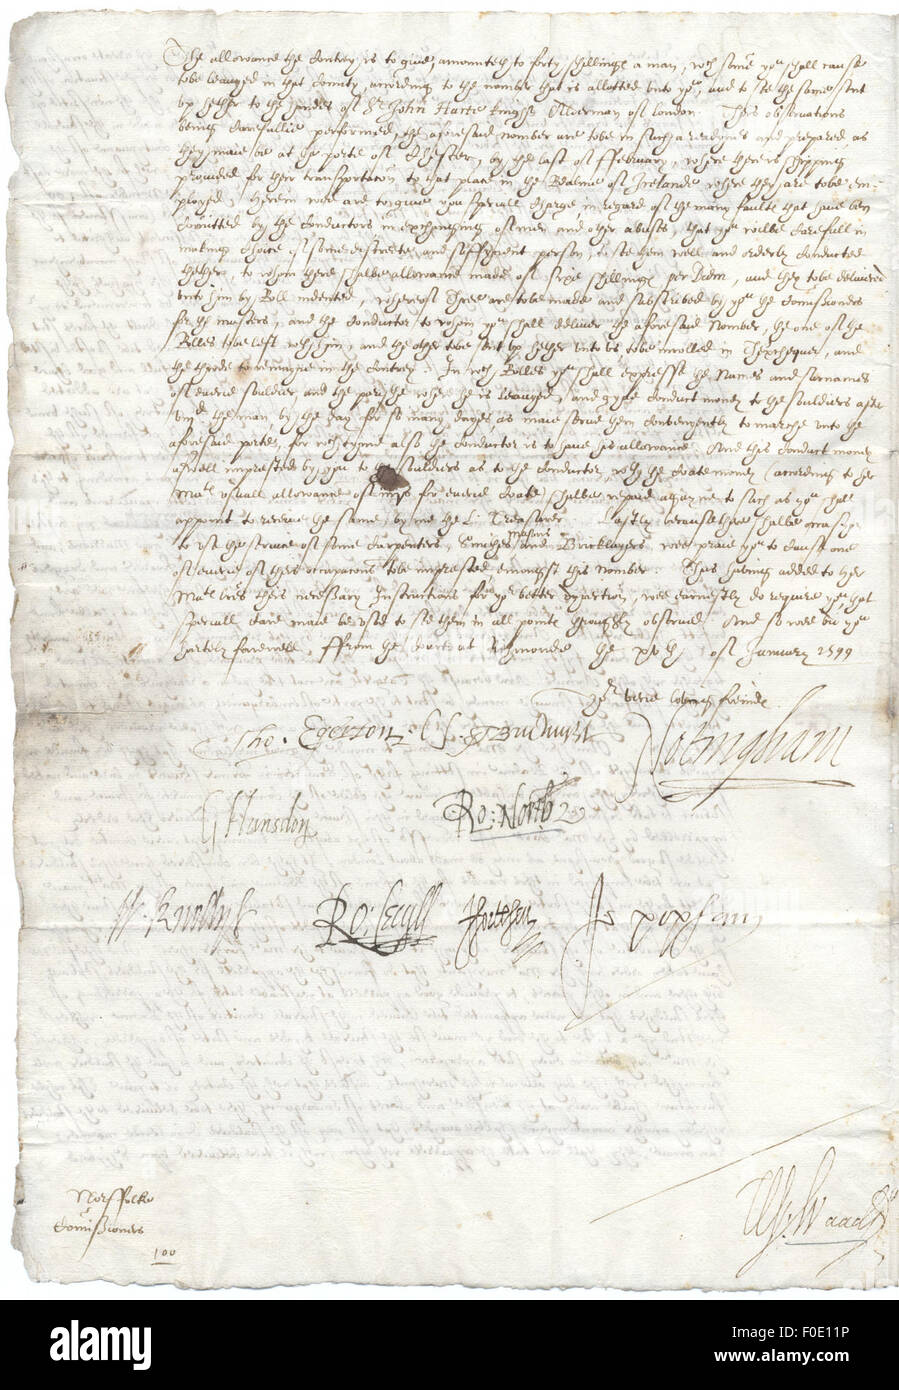 The allowance the Contrey is to give, amounteth to forty shillings a man, wch some yu shall cause
to be leavyed in that County, according to the number that is allotted unto yu, and to see the same sent
up hether to the handes of Sr John Harte knight Alderman of London. This observations
being carefullie performed, the aforesaid number are to be in such a readynes and prepared, as
they maie be at the porte of Chester, by the last of ffebruary, where there is shipping
provided for their transportacon to that place in the Realme of Ireland where they are to be em=
ployed, herein wee are to give you speciall charge, in regard of the many faults that have ben
committed by the conductors in exchanging of men and other abuses, that yu wilbe carefull in
making choice of some discreete, and sufficyent person, to see them well and orderly conducted
thether, to whom there shalbe allowance made of sixe shillings per Diem, and they to be delivered
unto him by Roll indented, whereof three are to be made and subscribed by yu the Comissioners
for the musters, and the conductor to whom yu shall deliver the aforesaid Number, the one of the
Rolles to be left wth him, and the other to be sent up hether unto us to be inrolled in Thexchequer, and
the thirde to remayne in the Contrey. In wch Rolles yu shall expresse the Names and surnames
of everie souldier and the parishe where he is leavyed, and gyve conduct money to the souldiers after
the man, by the day for so many dayes as maie serve them conveniently to marche unto the
aforesaid porte, for wch tyme also the conductor is to have his allowance. And this conduct money
aswell imprested by you to the souldiers as to the conductor, wth the Coate money (according to her
Mats usuall allowance of for everie Coate) shalbe repaid agayne to such as yu shall
appoint to receive the same, by me the L: Treasurer. Lastly because there shalbe occasyon
to use the service of some Carpenters, Smithes Masons and Bricklayers, wee praie yu to cause some
of everie of thers occupacons to be imprested amongst this number. This having added to her
Mats lres theis necessary Instructions for yr better direction, wee earnestly do require yu, that
speciall care maie be used to see them in all points throughly observed. And so wee bid yu
hartely farewell. ffrom the Courte at Richmonde the xvth of January 1599
Yor verie loving freinds
Tho. Egerton C S. T Buckhurst Notingham
G Hunsdon Ro: North
W. Knollys Ro: Cecyll J Fortescu Jo Popham
Norffolke
Comissioners
100
W: Waad
alamy
Image ID: F0E11P
www.alamy.com